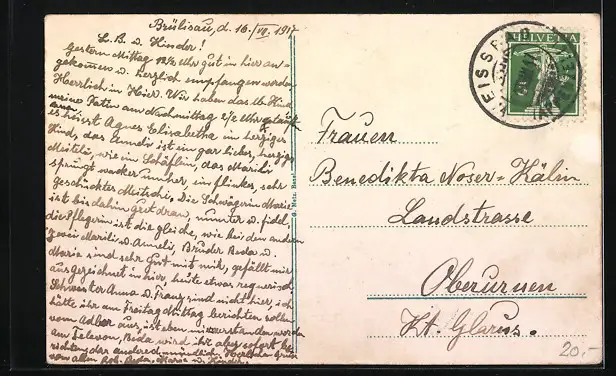 Brülisau, d. 16./VII. 1917
L. B. u. Kinder!
gestern Mittag 12½ Uhr gut in hier an-
gekommen u. herzlich empfangen worden
Herrlich in Hier. Wir haben das lb. Kind
meine Patin am Nachmittag Uhr getauft
es heisst Agnes Elisabetha ein herziges
Kind, das Anneli ist ein gar liebes, herziges
wie ein Schäflin, das Marili
springt wacker umher, ein flinkes, sehr
geschicktes Die Schwägerin Marie
ist bis dahin gut dran, munter u. fidel,
die Pflegerin ist die gleiche, wie bei den andern
zwei Marili u. Anneli, Bruder Beda u.
Maria sind sehr gut mit mir, gefällt mir
ausgezeichnet in hier, heute etwas regnerisch
Schwester Anna u. Franz sind nicht hier, ich
hätte ihr am Freitag Mittag berichten sollen
vom Adler aus, ist eben missverstanden worden
am Telefon, Beda wird ihr aber sofort be-
richten, das andere mündlich. Herzliche Grüsse
von allen Beda, Maria u. Kinder.
HELVETIA
WEISSBAD
Frauen
Benedikta Noser-Kälin
Landstrasse
Oberurnen
Kt. Glarus.
20,-